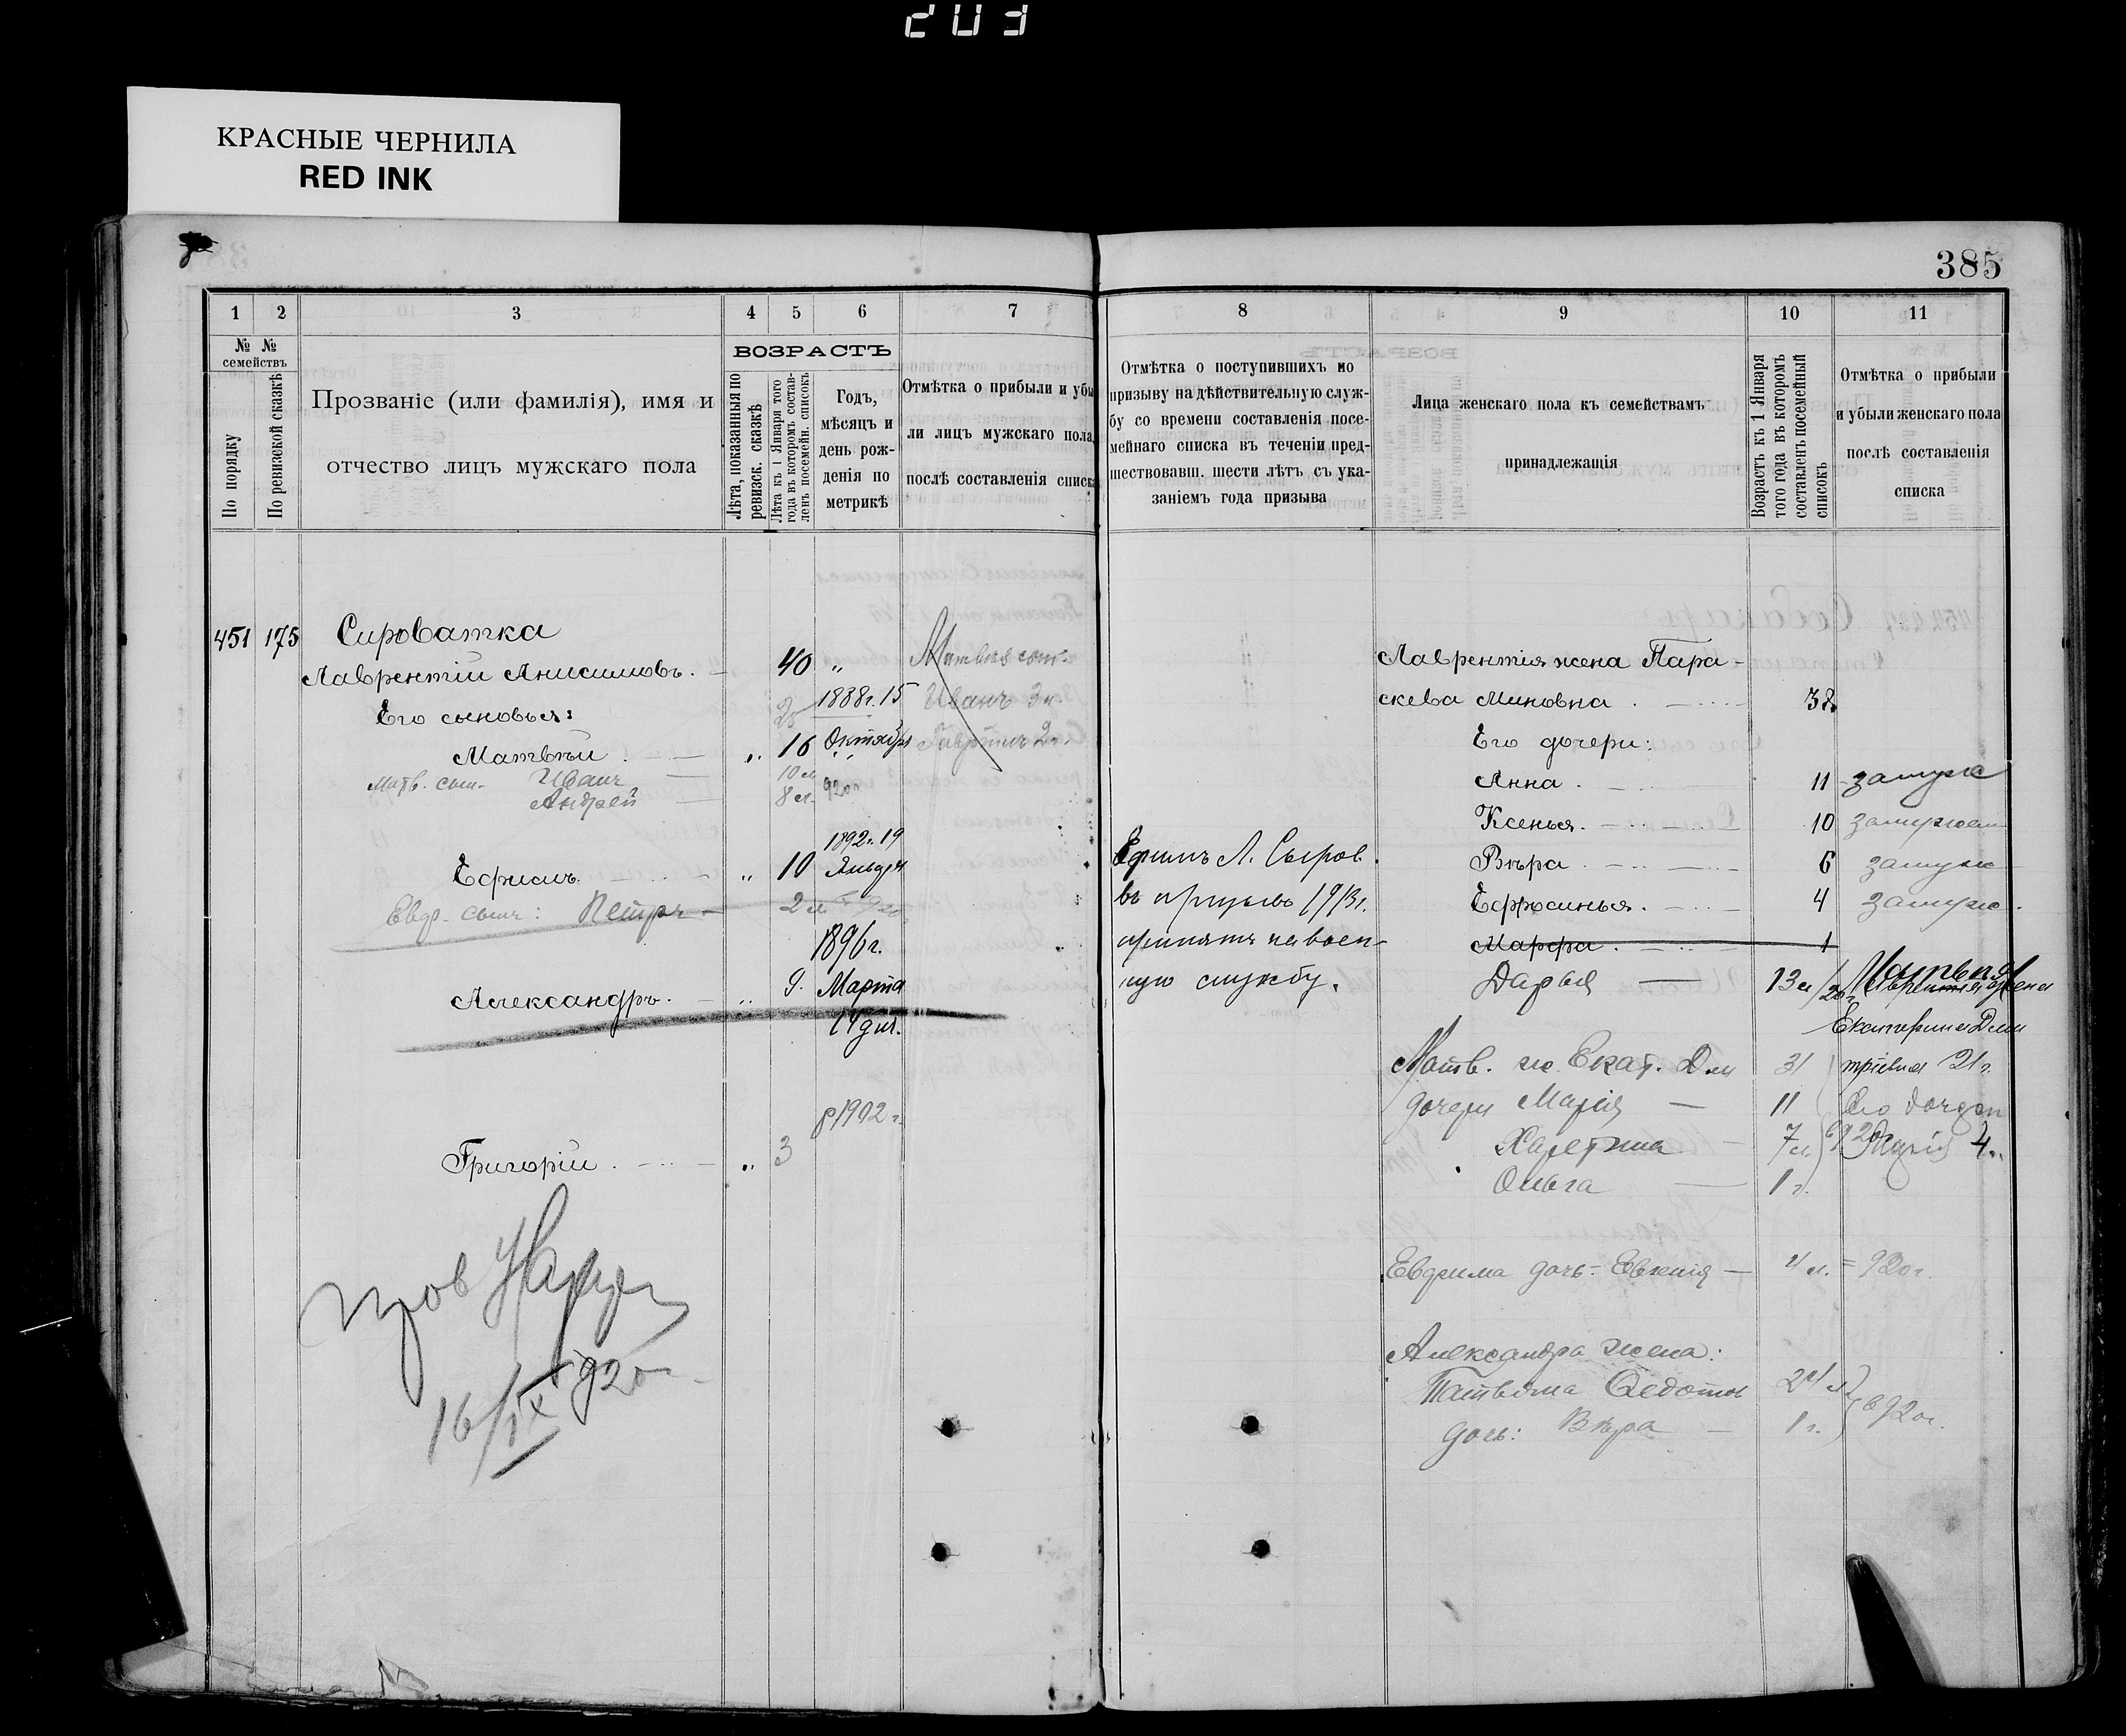 203
КРАСНЫЕ ЧЕРНИЛА
RED INK
385
1 2 3 4 5 6 7
№ № семействъ
По порядку
По ревизской сказкѣ
Прозваніе (или фамилія), имя и
отчество лицъ мужскаго пола
ВОЗРАСТЪ
Лѣта, показанныя по
ревизск. сказкѣ
Лѣта къ 1 Января того
года въ которомъ состав-
ленъ посемейн. списокъ
Годъ,
мѣсяцъ и
день рож-
денія по
метрикѣ
Отмѣтка о прибыли и убы
ли лицъ мужскаго пола,
послѣ составленія списка
8 9 10 11
Отмѣтка о поступившихъ по
призыву на дѣйствительную служ-
бу со времени составленія посе-
мейнаго списка въ теченіи пред-
шествовавш. шести лѣтъ съ ука-
заніемъ года призыва
Лица женскаго пола къ семействамъ
принадлежащія
Возрастъ къ 1 Января
того года въ которомъ
составленъ посемейный
списокъ
Отмѣтка о прибыли
и убыли женскаго пола
послѣ составленія
списка
451 175 Сироватка
Лаврентій Анисимовъ. 40 „
Его сыновья: 1888г. 15
Матвѣй „ 16 Октября
Матв. сын. Иванъ 10 л.
Андрей 8 л. 920г
1892г. 19
Ефимъ „ 10 Января
Евф. сынъ: Петръ 2 л.
1896г.
Александръ. „ 9. Марта
14 дня.
р 1902 г.
Григорій „ 3
16/IX 920г.
Матвея сын.
Иванъ 3 л.
2 л.
Ефимъ Л. Сыров.
въ призывъ 1913г.
принятъ на воен-
ную службу.
Лаврентія жена Пара-
скева Миновна 38
Его дочери:
Анна 11 замуже
Ксенья 10 замужем
Вѣра 6 замуже
Ефросинья 4 замуже.
Марфа 1
Дарья 13 л Матвѣя жена
Екатерина Дми
Матв. ж. Екат. Дм 31 тріевна 21г.
дочери Марія 11 Его дочери
7 л. Марія 4
Ольга 1 г.
Евфима дочь: Евгенія 4 л. = 920г.
Александра жена:
Татьяна Федотов 24 л
дочь: Вѣра 1 г. в 920г.